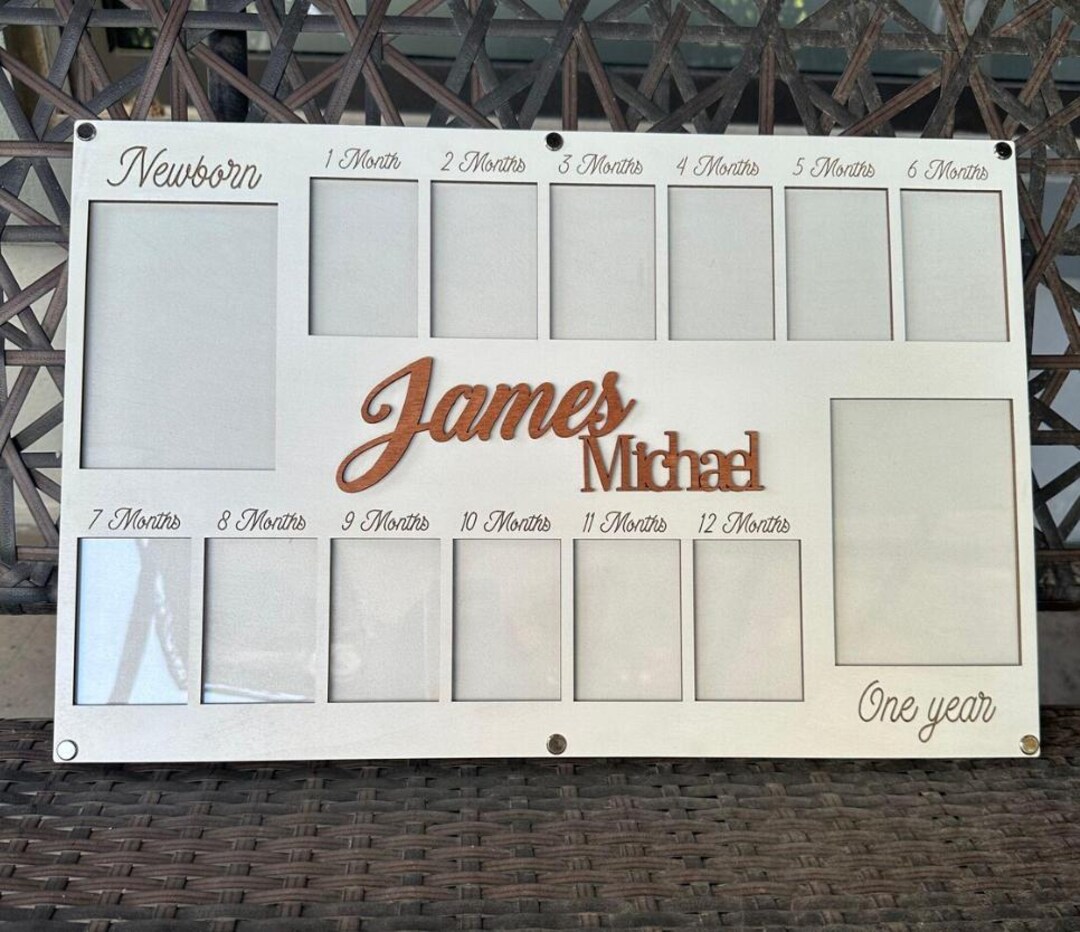 Newborn
1 Month
2 Months
3 Months
4 Months
5 Months
6 Months
James
Michael
7 Months
8 Months
9 Months
10 Months
11 Months
12 Months
One year